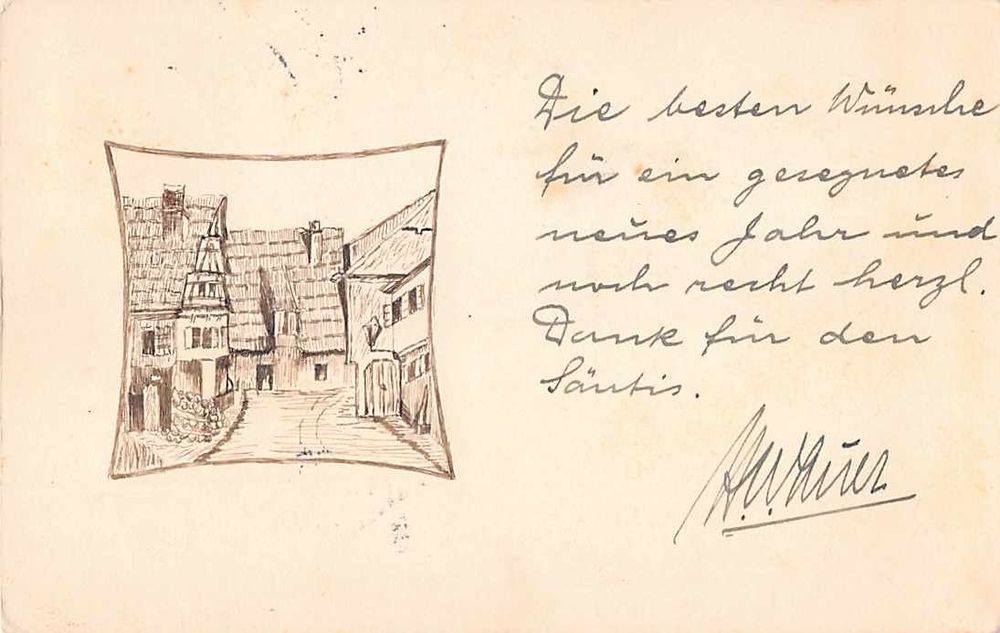 Die besten Wünsche
für ein gesegnetes
neues Jahr und
noch recht herzl.
Dank für den
Säntis.